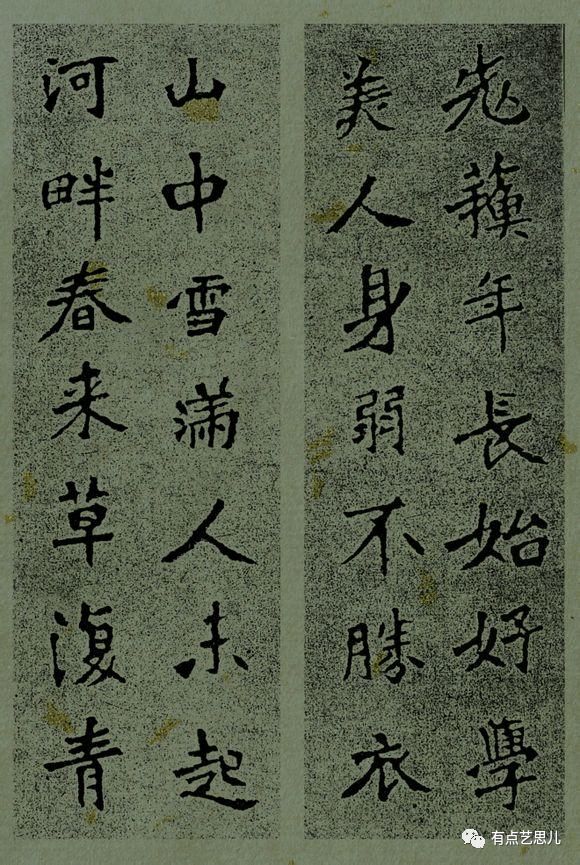 老蘓年長始好學
美人身弱不勝衣
山中雪滿人未起
河畔春来草復青
有点艺思儿